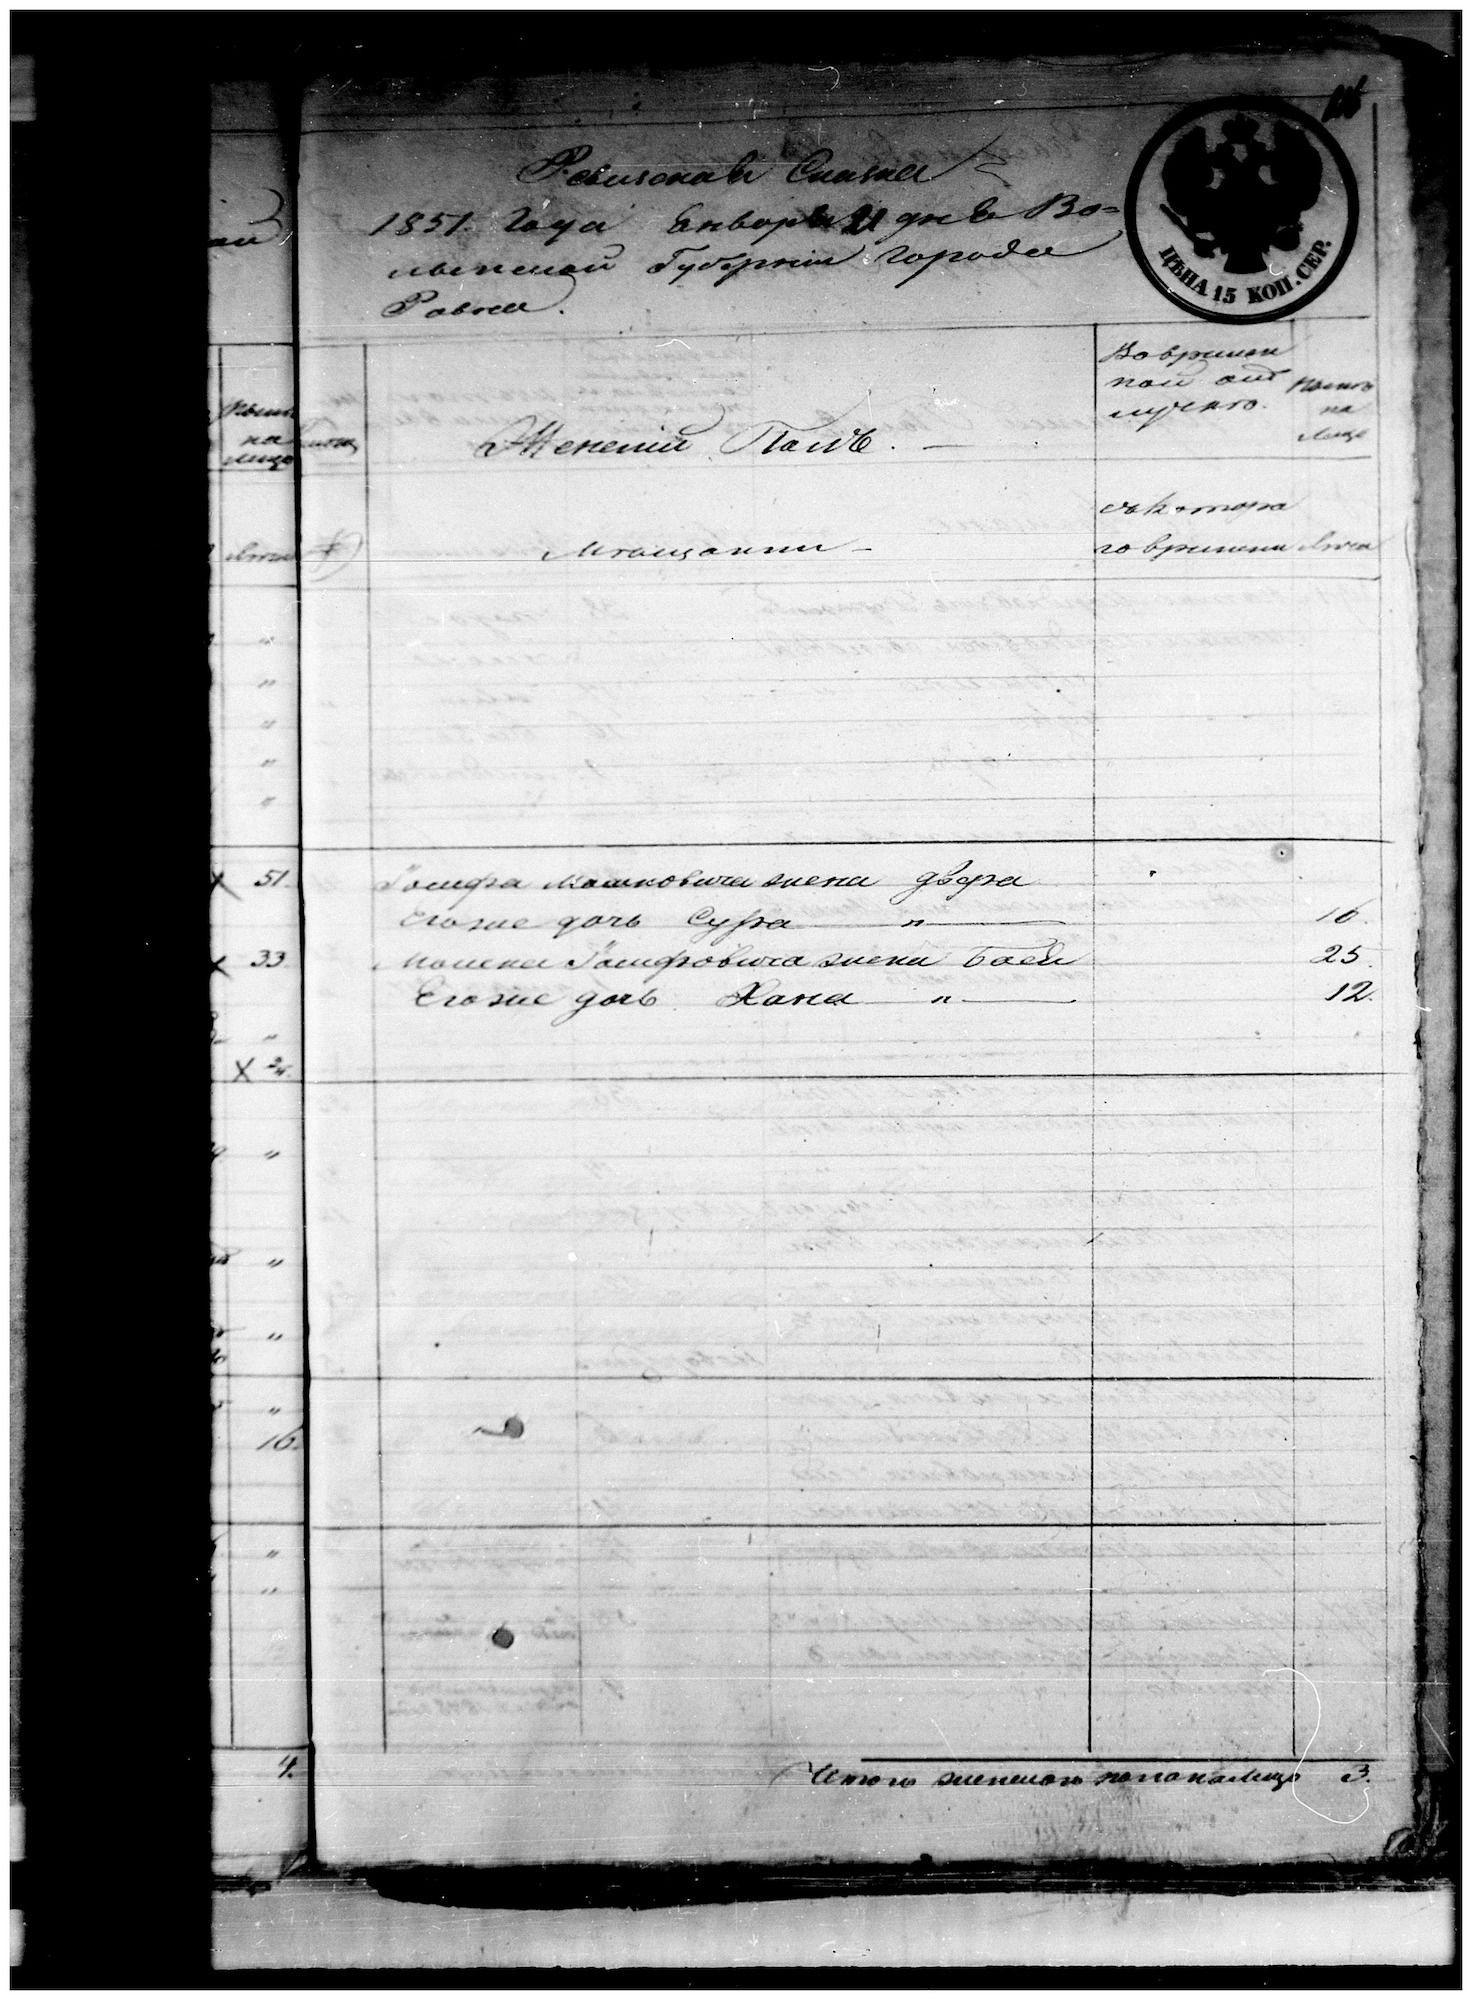 Ревизская Сказка
1851. Года Января 21 дня Во=
лынской Губернии Города
Ровна.
ЦѢНА 15 КОП. СЕР.
Женский Полъ.
Во времен
ной от
лучке.
Ныне
на
лицо
Мещанни
съ котора
го времени
Лета
на
лицо
Лета
51
Иосифа Мошковича жена Двера
Его же дочь Сура " 16.
33
Мошка Иосифовича жена Бася 25.
Его же дочь Хана " 12.
16.
4.
Итого женского пола на лицо 3.